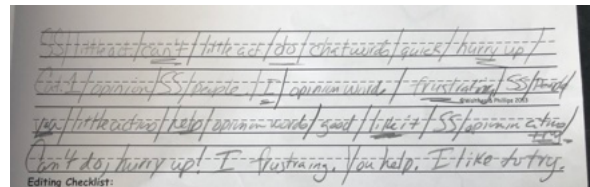 SS/little act/can't/little act/do/chat words/quick/hurry up/
Ed.1/opinion/SS/people/I/opinion words/frustrating/SS/people/
you/little acting/help/opinion words/good/like it/SS/opinion
Can't do, hurry up! I frustraing. You help. I like to try.
Editing Checklist: